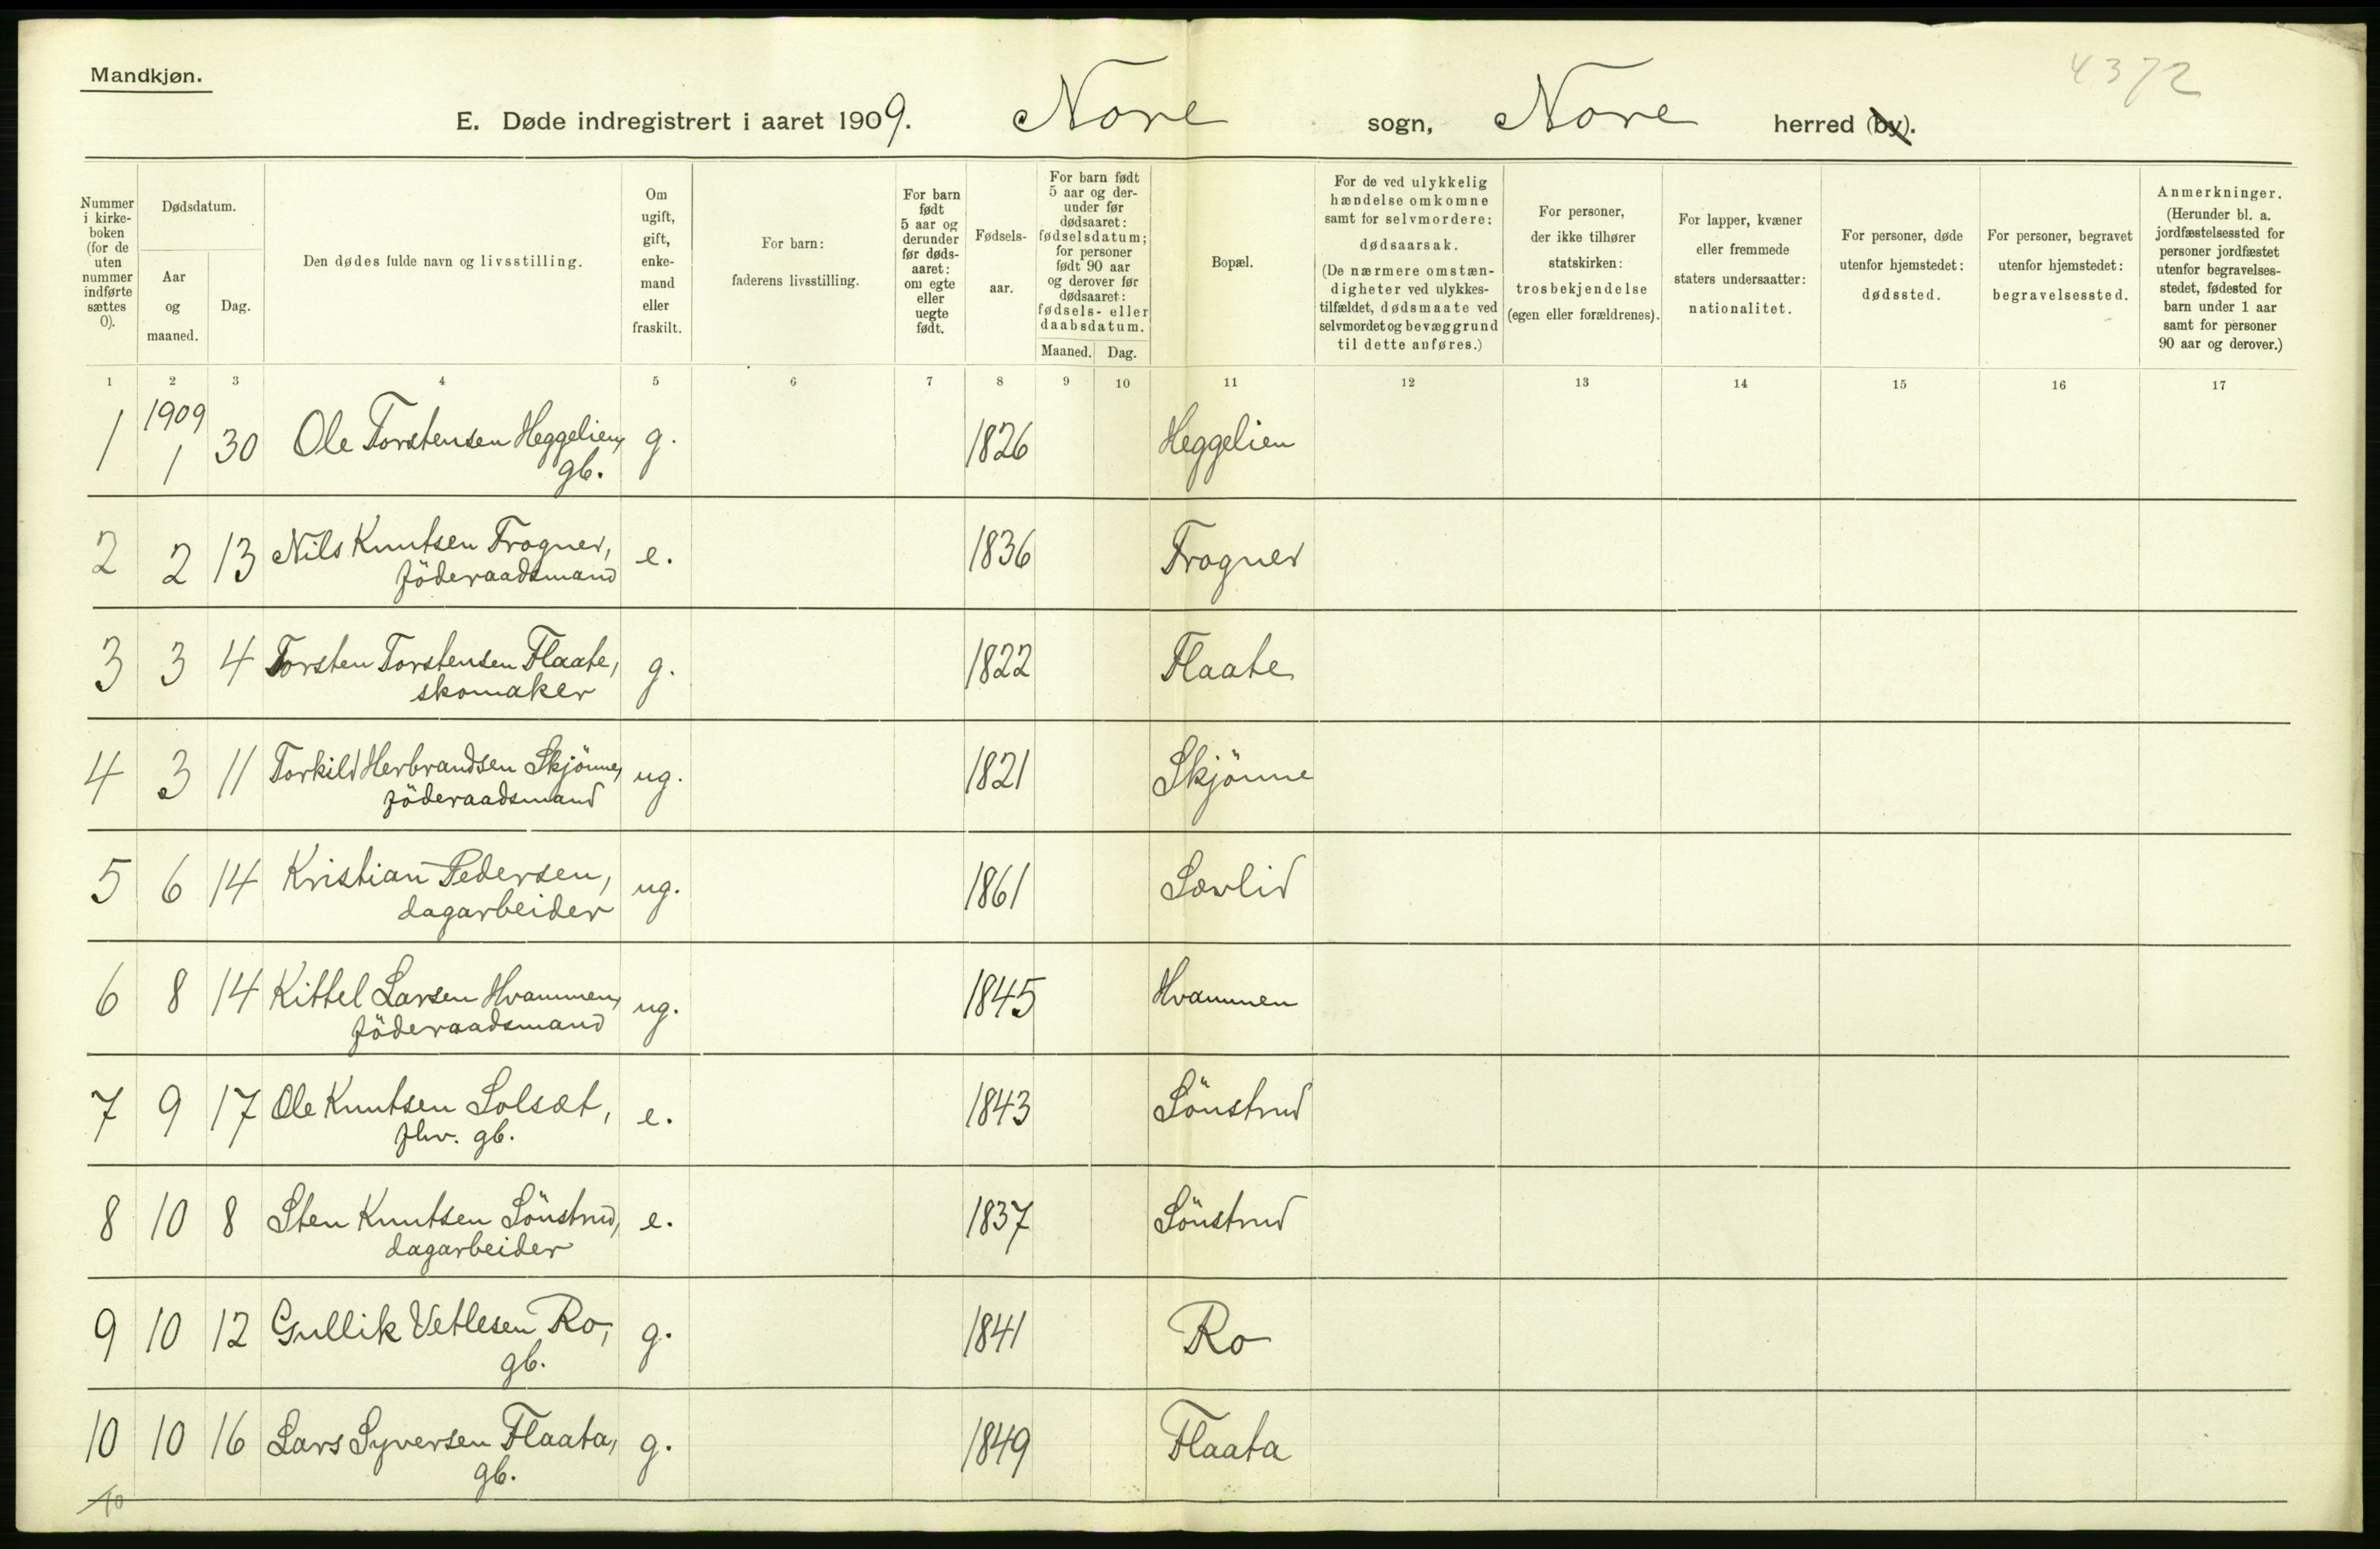 Mandkjøn.
4372
E. Døde indregistrert i aaret 1909. Nore sogn, Nore herred (by).
Nummer i kirke-boken (for de uten nummer indførte sættes 0).
Dødsdatum.
Aar og maaned.
Dag.
Den dødes fulde navn og livsstilling.
Om ugift, gift, enke-mand eller fraskilt.
For barn: faderens livsstilling.
For barn født 5 aar og derunder før døds-aaret: om egte eller uegte født.
Fødsels-aar.
For barn født 5 aar og der-under før dødsaaret: fødselsdatum; for personer født 90 aar og derover før dødsaaret: fødsels- eller daabsdatum.
Maaned. Dag.
Bopæl.
For de ved ulykkelig hændelse omkomne samt for selvmordere: dødsaarsak. (De nærmere omstæn-digheter ved ulykkes-tilfældet, dødsmaate ved selvmordet og bevæggrund til dette anføres.)
For personer, der ikke tilhører statskirken: trosbekjendelse (egen eller forældrenes).
For lapper, kvæner eller fremmede staters undersaatter: nationalitet.
For personer, døde utenfor hjemstedet: dødssted.
For personer, begravet utenfor hjemstedet: begravelsessted.
Anmerkninger. (Herunder bl. a. jordfæstelsessted for personer jordfæstet utenfor begravelses-stedet, fødested for barn under 1 aar samt for personer 90 aar og derover.)
1 2 3 4 5 6 7 8 9 10 11 12 13 14 15 16 17
1909
1 1 30 Ole Torstensen Heggelien, g. 1826 Heggelien
gb.
2 2 13 Nils Knutsen Frogner, e. 1836 Frogner
föderaadsmand
3 3 4 Torsten Torstensen Flaate, g. 1822 Flaate
skomaker
4 3 11 Torkild Herbrandsen Skjönne, ug. 1821 Skjönne
föderaadsmand
5 6 14 Kristian Pedersen, ug. 1861 Sørlid
dagarbeider
6 8 14 Kittel Larsen Hvammen, ug. 1845 Hvammen
föderaadsmand
7 9 17 Ole Knutsen Solsæt, e. 1843 Sönstrud
fhv. gb.
8 10 8 Sten Knutsen Sönstrud, e. 1837 Sönstrud
dagarbeider
9 10 12 Gullik Vetlesen Ro, g. 1841 Ro
gb.
10 10 16 Lars Syversen Flaata, g. 1849 Flaata
gb.
10